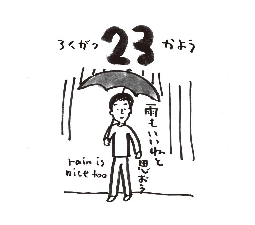 ろくがつ 23 かよう
雨もいいねと
思おう
rain is
nice too